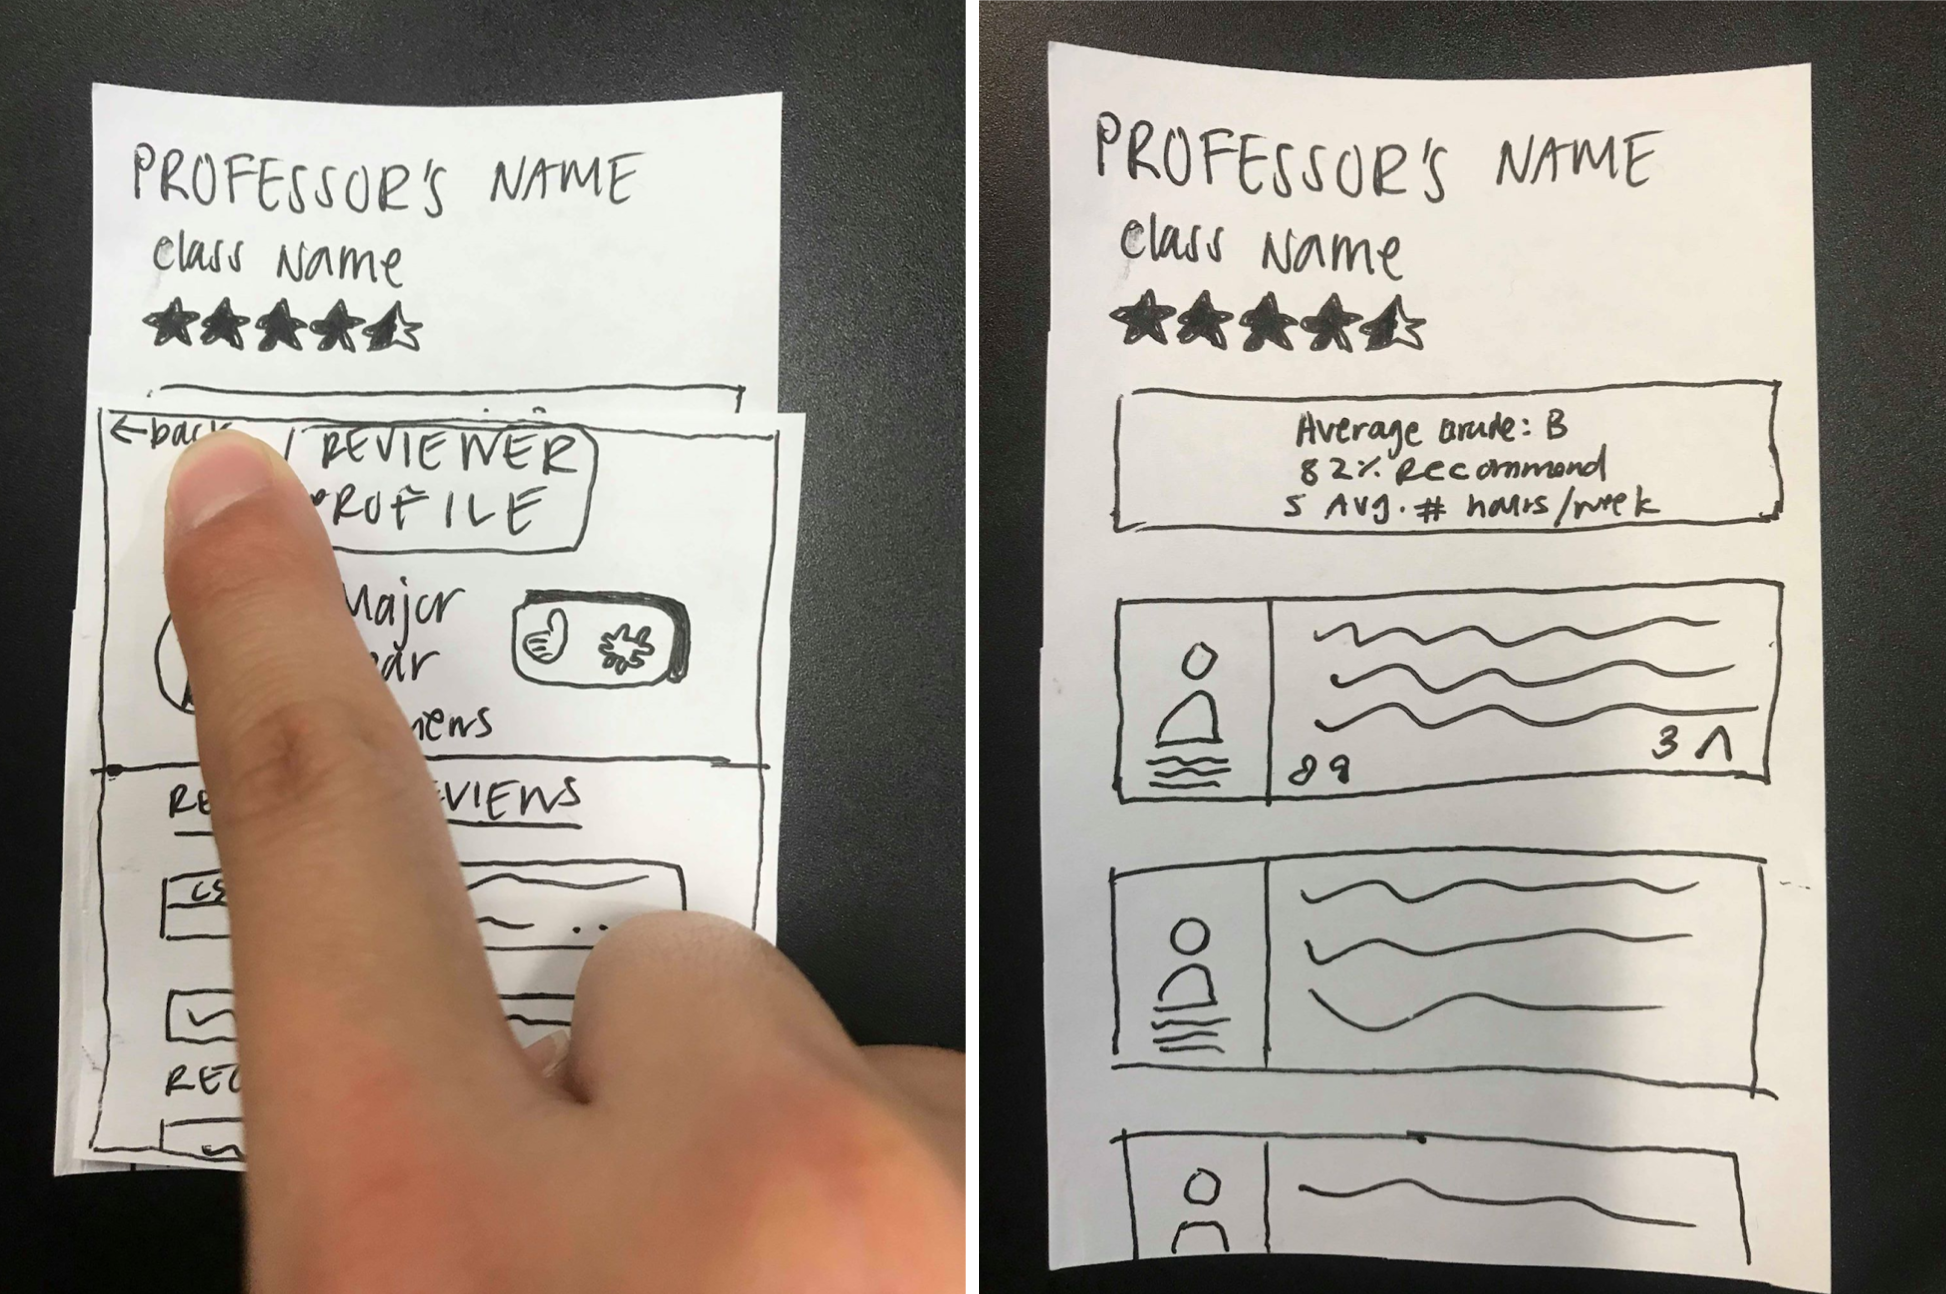 PROFESSOR'S NAME
Class Name
←back
REVIEWER
PROFILE
Major
CS
PROFESSOR'S NAME
Class Name
Average Grade: B
82% Recommend
5 Avg. # hours/week
3